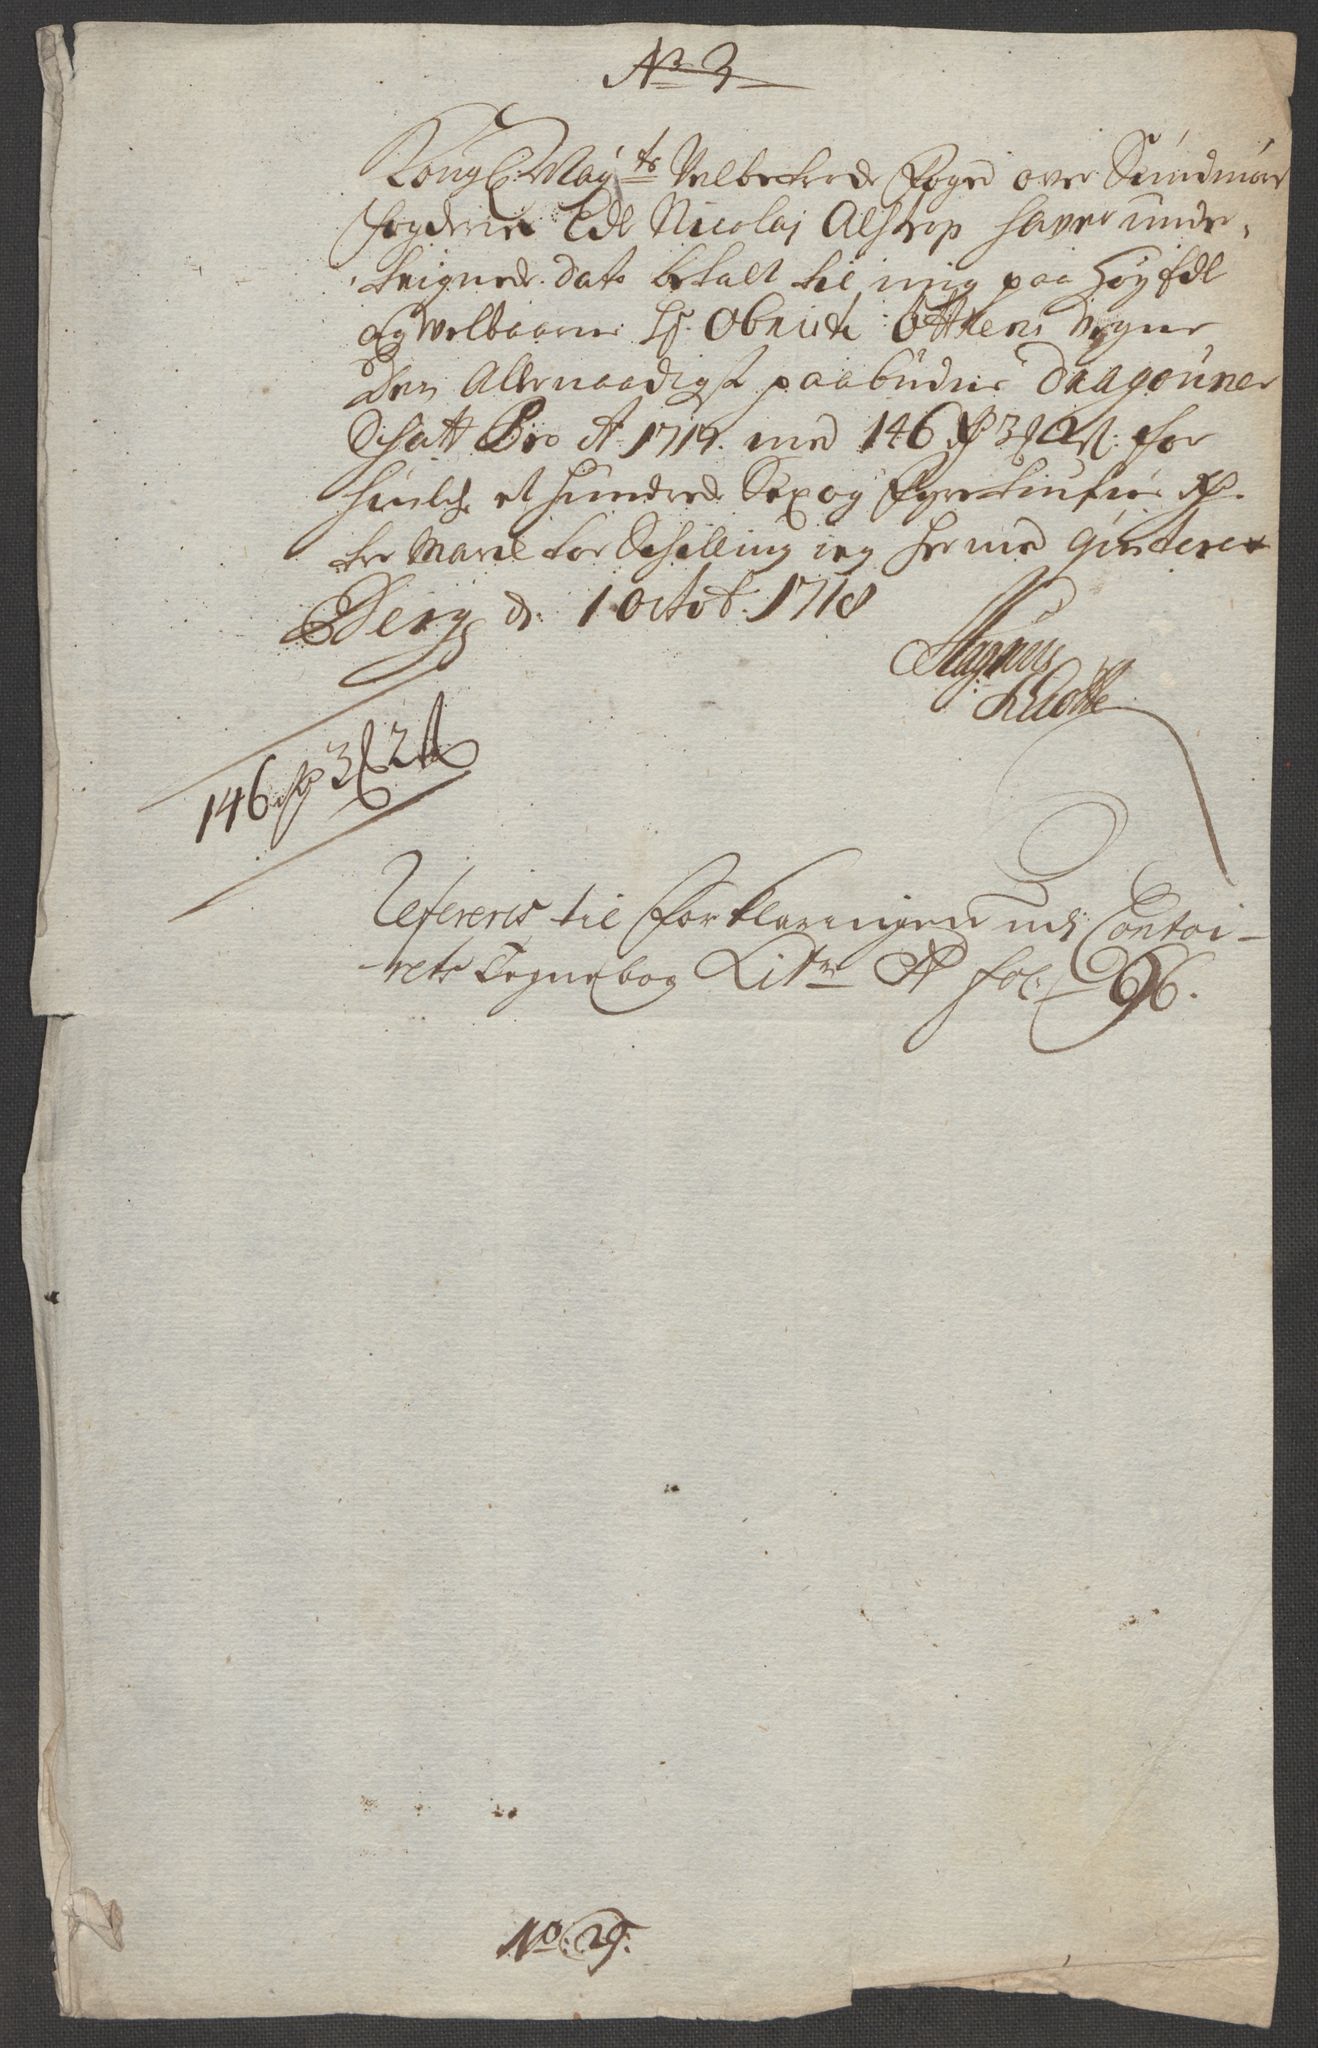 No 3
Kongl: May:ts Velbetrode Foged over Sundmør
fogderie Edl Nicolaj Alstrop haver under-
teignede dato betalt til mig paa Høyædl
og Velbaarne Hr. Obriste Øttkens Vegne
den Allernaadigst paabudne Dragouner
Schatt Pro Ao 1714. med 146 Rd 3 ß. for
huilche et hundrede Sex og Fyretiufve Rd.
tre Marck toe Schilling ieg hermed qviterer
Berg d. 1 Octob. 1718
Magnus
146 Rd 3 2 ß
Refereris til Forklaringen udi Contoi-
rets Tegnebog Litr A fol: 66.
No: 29.